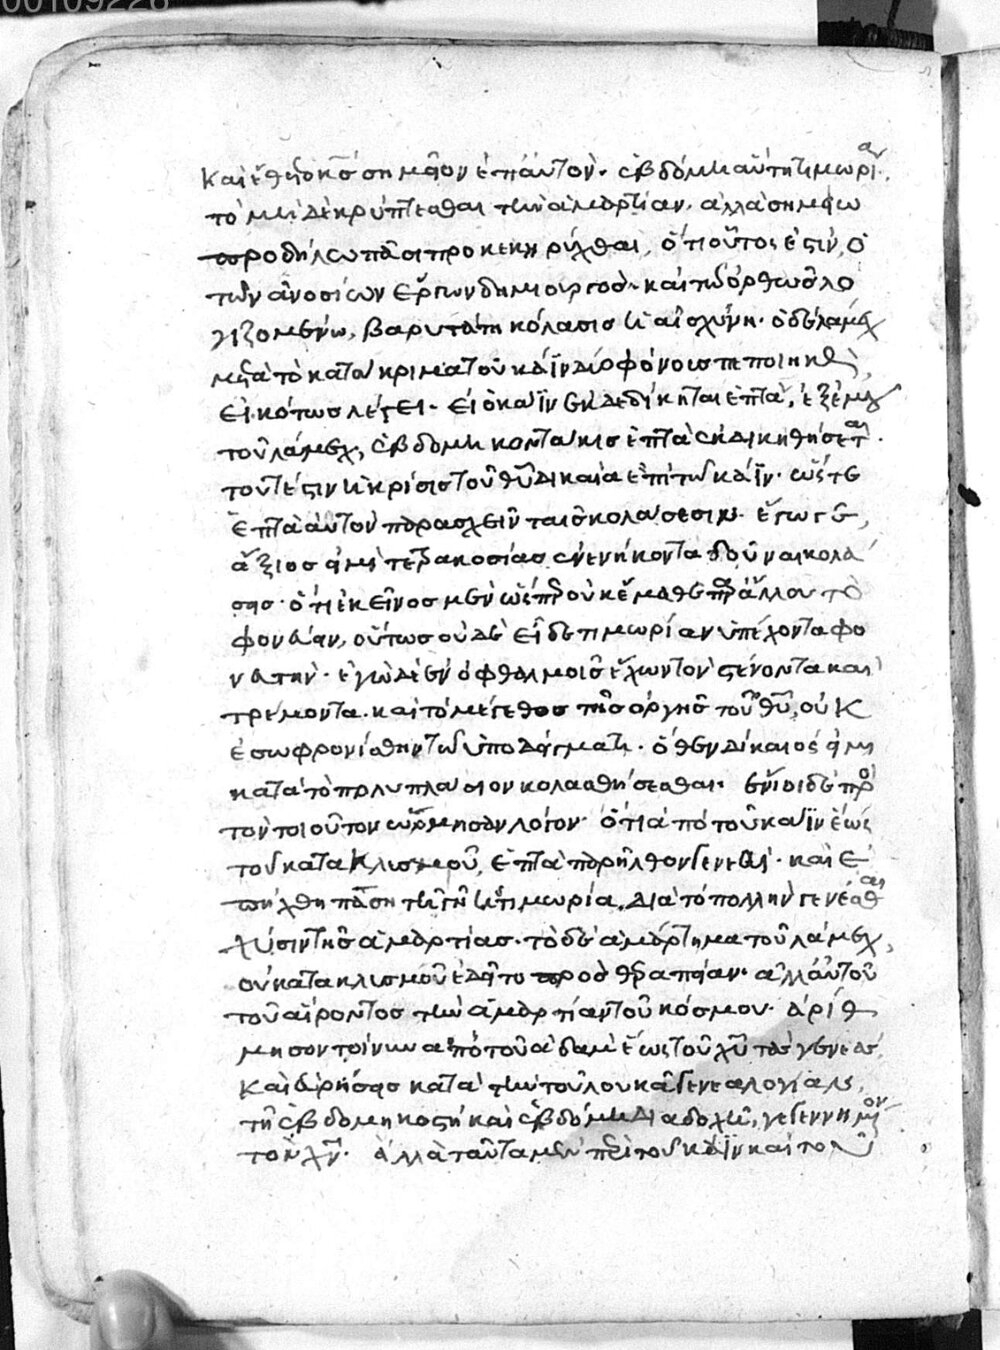 00109226
καὶ ἔθετο κς̅ σημεῖον ἐπ' αὐτόν. ἑβδόμη αὕτη τιμωρία.
τὸ μηδὲ κρύπτεσθαι τὴν ἁμαρτίαν. ἀλλὰ σημείω
προδήλω πᾶσι προκεκηρύχθαι, ὅτι οὗτος ἐστιν, ὁ
τῶν ἀνοσίων ἔργων δημιουργός. καὶ τῶ ὀρθῶς λο
γιζομένω, βαρυτάτη κόλασις ἡ αἰσχύνη. ὁ δὲ λάμεχ
μετὰ τὸ κατάκριμα τοῦ κάϊν διὸ φόνοις πεποιηκὼς,
εἰκότως λέγει. εἰ ὁ κάϊν ἐκδεδίκηται ἑπτὰ, ἐξ ἐμοῦ
τοῦ λάμεχ, ἑβδομηκοντάκις ἑπτὰ ἐκδικηθήσεται.
τουτέστιν ἡ κρίσις τοῦ θυ̅ δικαία ἐπὶ τῶ κάϊν. ὥστε
ἑπτὰ αὐτὸν παρασχεῖν ταῖς κολάσεσιν. ἐγὼ γὰρ,
ἄξιός εἰμι τετρακοσίας ἐνενήκοντα δοῦναι κολά
σεις. ὅτι ἐκεῖνος μὲν ὥσπερ οὐκ ἔμαθε παρ' ἄλλου τὸ
φονεύειν, οὕτως οὐδὲ εἶδε τιμωρίαν ὑπέχοντα φο
νευτήν. ἐγὼ δὲ ἐν ὀφθαλμοῖς ἔχων τὸν στένοντα καὶ
τρέμοντα. καὶ τὸ μέγεθος τῆς ὀργῆς τοῦ θυ̅, οὐκ
ἐσωφρονίσθην τῶ ὑποδείγματι. ὅθεν δίκαιός εἰμι
κατὰ τὸ πολυπλάσιον κολασθήσεσθαι. ἔνιοι δὲ πρὸς
τὸν τοιοῦτον ὥρμησαν λόγον. ὅτι ἀπὸ τοῦ κάϊν ἕως
τοῦ κατακλισμοῦ, ἑπτὰ παρῆλθον γενεαὶ. καὶ ἐ
πήχθη πάση τῆ γῆ ἡ τιμωρία, διὰ τὸ πολλὴν γενέσθαι
χύσιν τῆς ἁμαρτίας. τὸ δὲ ἁμάρτημα τοῦ λάμεχ,
οὐ κατακλισμοῦ ἐδεῖτο πρὸς θεραπείαν. ἀλλ' αὐτοῦ
τοῦ αἴροντος τὴν ἁμαρτίαν τοῦ κόσμου. ἀρίθ
μησον τοίνυν ἀπὸ τοῦ ἀδὰμ ἕως τοῦ χυ̅ τὰς γενεὰς,
καὶ εὑρήσεις κατὰ τὴν τοῦ λουκᾶ γενεαλογίαν,
τῆ ἑβδομηκοστῆ καὶ ἑβδόμη διαδοχῆ, γεγεννημένον
τὸν χν̅. ἀλλὰ ταῦτα μὲν περὶ τοῦ κάϊν καὶ τοῦ